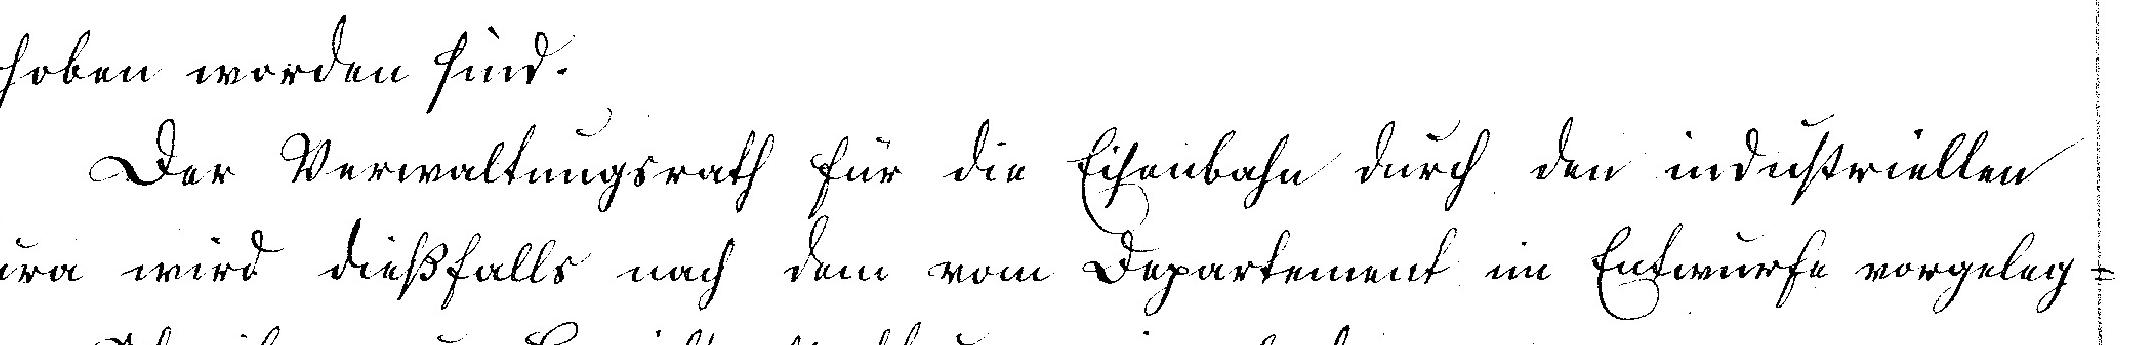 hoben worden sind.
Der Verwaltungsrath für die Eisenbahn durch den industriellen
ura wird dießfalls nach dem vom Departement im Entwurfe vorgeleg=